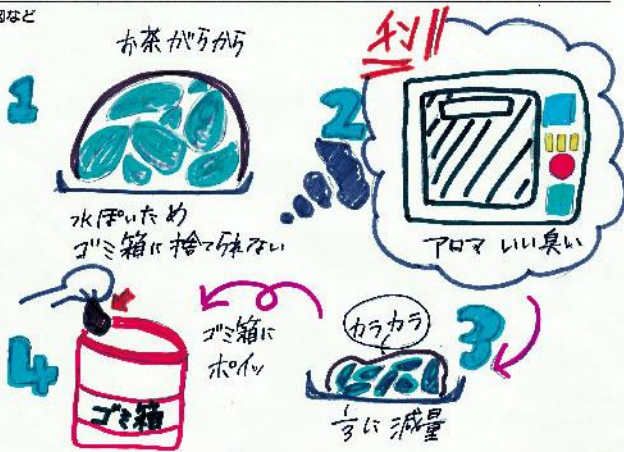 図など
1
お茶がらから
水ぽいため
ゴミ箱に捨てられない
2
チン!!
アロマ いい臭い
3
カラカラ
1/3に減量
4
ゴミ箱に
ポイッ
ゴミ箱